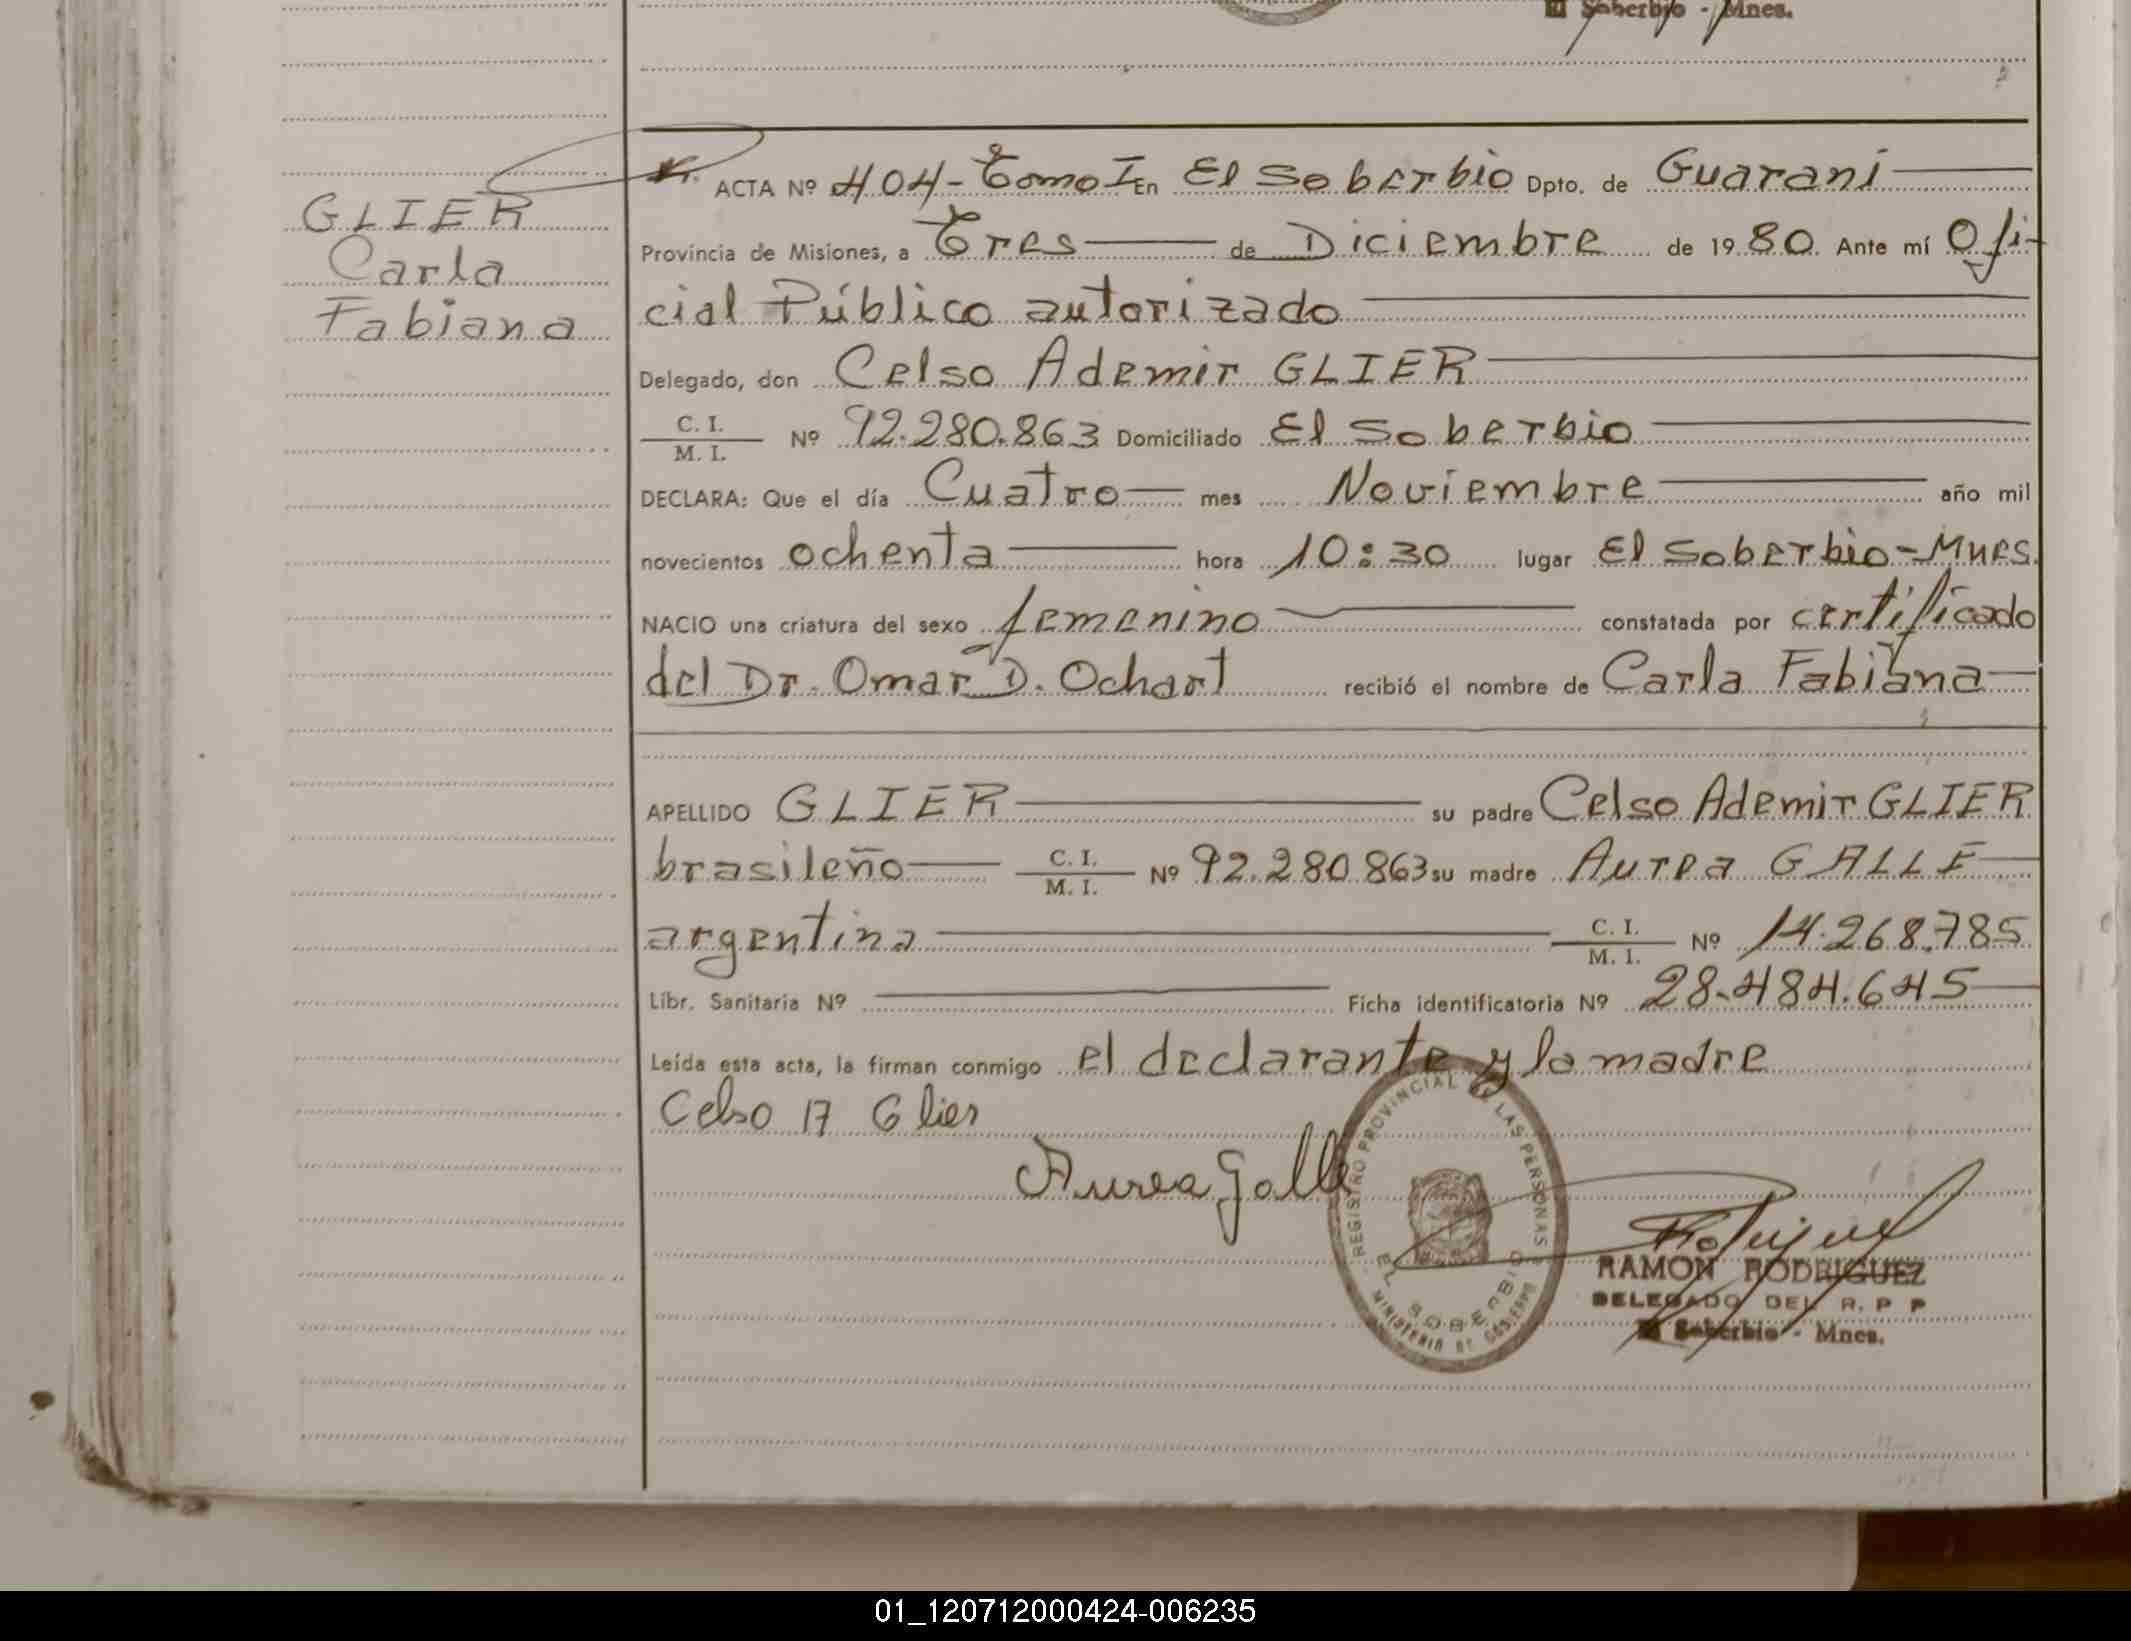 El Soberbio - Mnes.
ACTA Nº 404 - Tomo I En El Soberbio Dpto. de Guaraní
GLIER
Carla
Fabiana
Provincia de Misiones, a Tres de Diciembre de 1980. Ante mí Ofi-
cial Público autorizado
Delegado, don Celso Ademir GLIER
C. I.
M. I. Nº 92.280.863 Domiciliado El Soberbio
DECLARA: Que el día Cuatro mes Noviembre año mil
novecientos ochenta hora 10:30 lugar El Soberbio - Mnes.
NACIO una criatura del sexo femenino constatada por certificado
del Dr. Omar D. Ochart recibió el nombre de Carla Fabiana
APELLIDO GLIER su padre Celso Ademir GLIER
brasileño C. I. M. I. Nº 92.280.863 su madre Aurea GALLE
argentina C. I. M. I. Nº 14.268.785
Libr. Sanitaria Nº Ficha identificatoria Nº 28.484.645
Leída esta acta, la firman conmigo el declarante y la madre
Celso A Glier
Aurea Galle
REGISTRO PROVINCIAL DE LAS PERSONAS
EL SOBERBIO
MINISTERIO DE GOBIERNO
RAMON RODRIGUEZ
DELEGADO DEL R. P P
El Soberbio - Mnes.
01_120712000424-006235